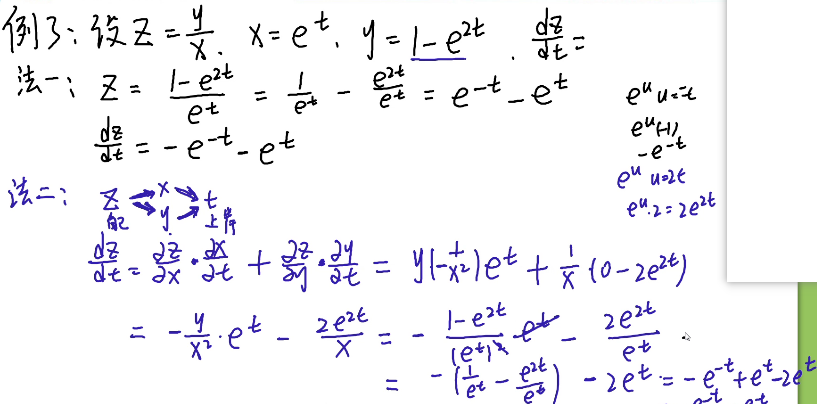 例3:设Z=y/x. x=e^t. y=1-e^{2t}. dz/dt=
法一: Z = (1-e^{2t})/e^t = 1/e^t - e^{2t}/e^t = e^{-t} - e^t
dz/dt = -e^{-t} - e^t
e^u u=-t
e^u(-1)
-e^{-t}
e^u u=2t
e^u·2=2e^{2t}
法二: Z x y t
自己 上阵
dz/dt = ∂z/∂x · ∂x/∂t + ∂z/∂y · ∂y/∂t = y(-1/x²)e^t + 1/x (0-2e^{2t})
= -y/x² · e^t - 2e^{2t}/x = - (1-e^{2t})/(e^t)² e^t - 2e^{2t}/e^t
= -(1/e^t - e^{2t}/e^t) - 2e^t = -e^{-t}+e^t-2e^t